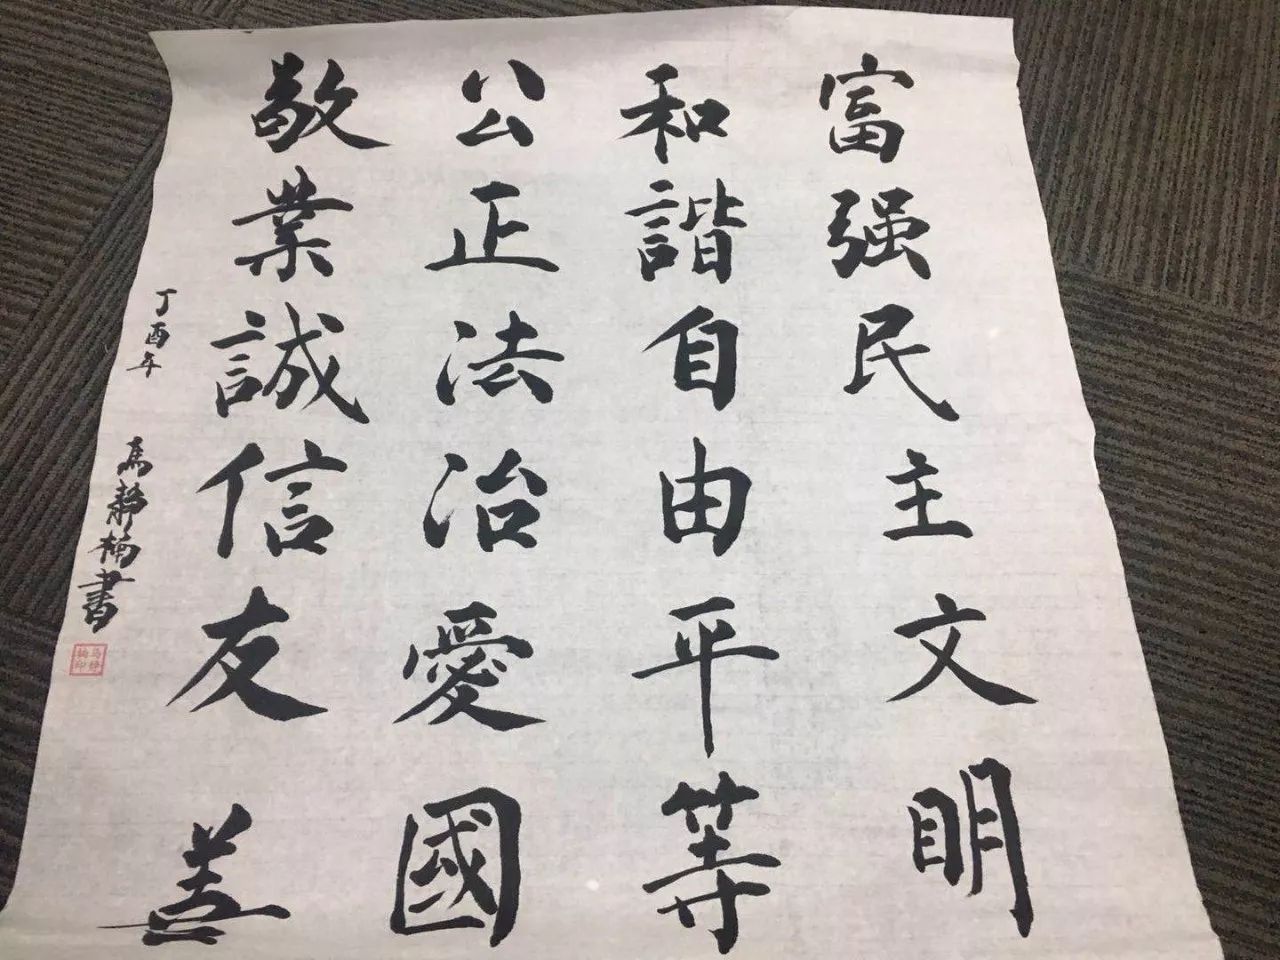 富强民主文明
和諧自由平等
公正法治愛國
敬業誠信友善
丁酉年 馬靜楠書